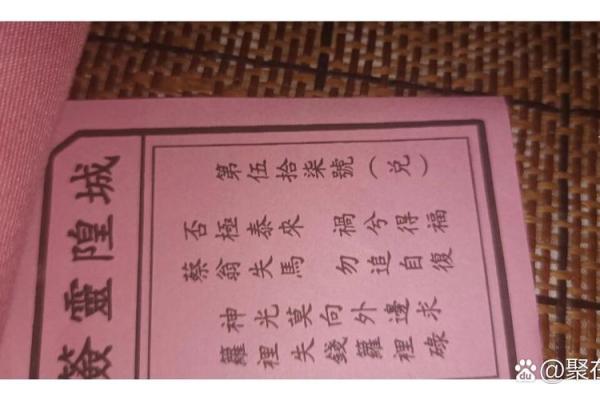 城隍靈簽
第伍拾柒號（兌）
否極泰來 禍兮得福
蔡翁失馬 勿追自復
神光莫向外邊求
籮裡失錢籮裡碌
du @聚在